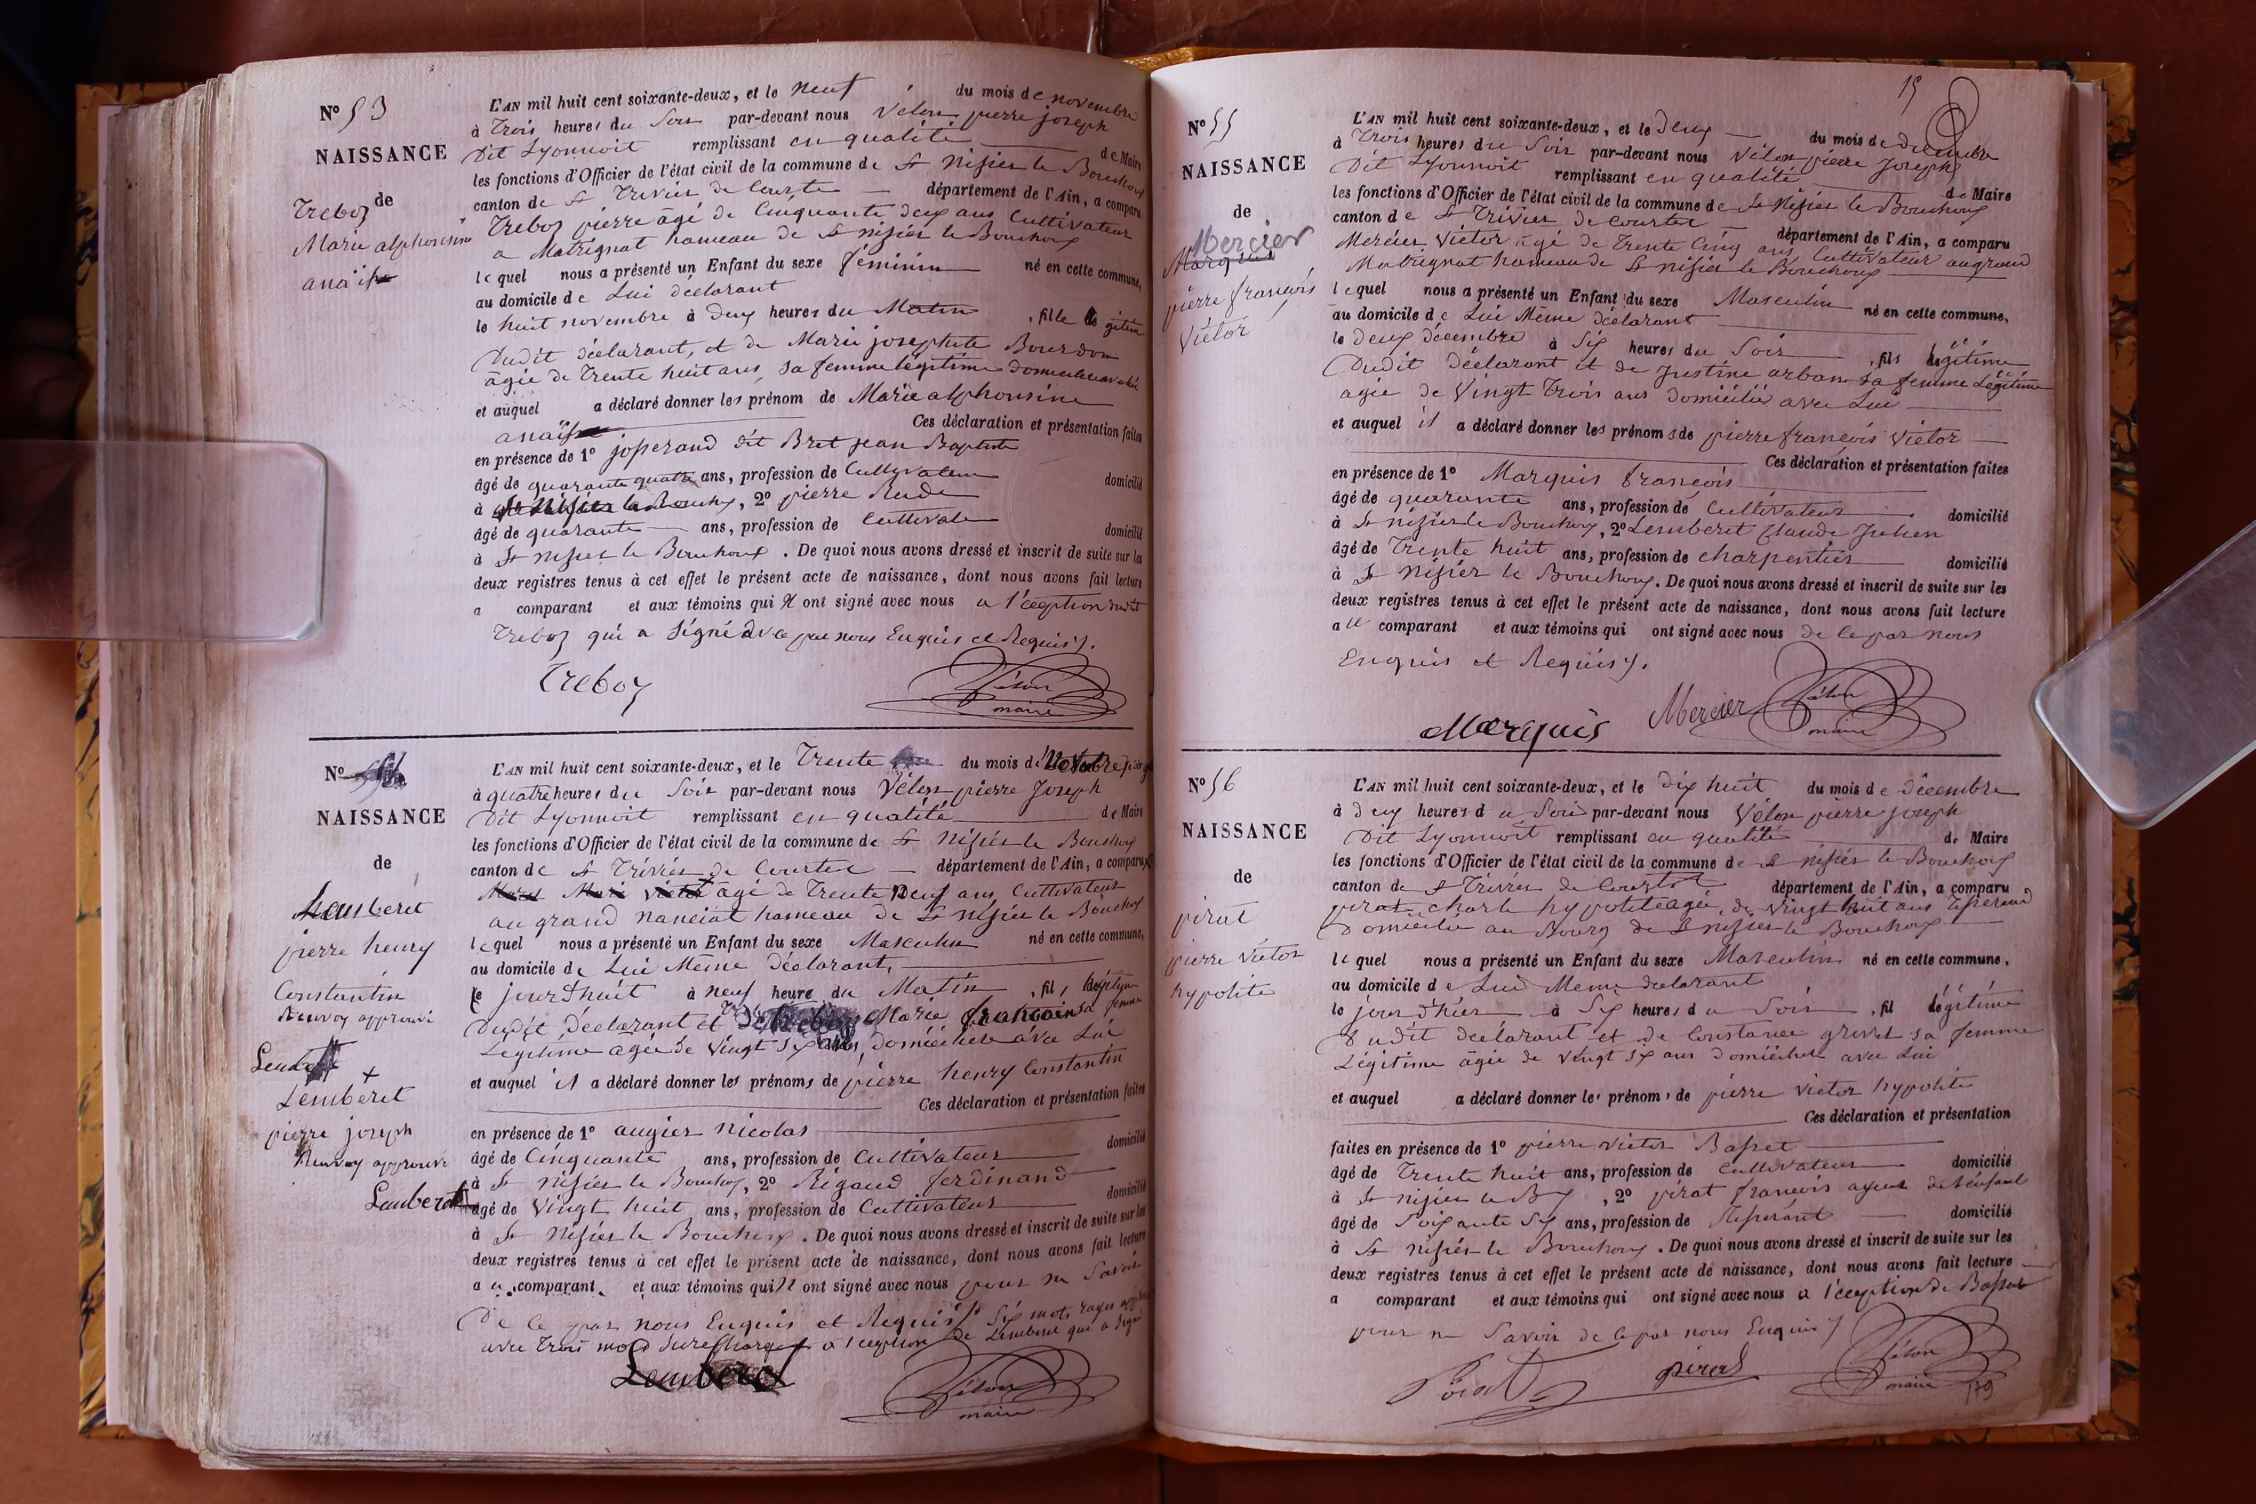 N° 53
NAISSANCE
de
Treboz
Marie alphonsine
anaïs
L'AN mil huit cent soixante-deux, et le neuf du mois de novembre
à Trois heures du Soir par-devant nous Vélon pierre joseph
Dit Lyonnoit remplissant en qualité de Maire
les fonctions d'Officier de l'état civil de la commune de St Nizier le Bouchoux
canton de St Trivier de Courte département de l'Ain, a comparu
Treboz pierre agé de Cinquante deux ans Cultivateur
a Matrignat hameau de St nizier le Bouchoux
lequel nous a présenté un Enfant du sexe féminin né en cette commune,
au domicile de Lui déclarant
le huit novembre à deux heures du Matin , fille légitime
Dudit déclarant, et de Marie josephete Bourdon
agée de Trente huit ans, sa femme légitime
et auquel a déclaré donner les prénom de Marie alphonsine
anaïs Ces déclaration et présentation faites
en présence de 1° josserand dit Bret jean Baptiste
âgé de quarante quatre ans, profession de Cultivateur domicilié
à St Nizier le Bouchoux, 2° pierre Rude
âgé de quarante ans, profession de Cultivate domicilié
à St Nizier le Bouchoux . De quoi nous avons dressé et inscrit de suite sur les
deux registres tenus à cet effet le présent acte de naissance, dont nous avons fait lecture
a comparant et aux témoins qui ont signé avec nous a l'éception dudit
Treboz qui a Signé de ce par nous Enquis et Requis.
Treboz
Vélon
maire
N°
NAISSANCE
de
Lemberet
pierre henry
Constantin
Renvoy approuvé
Lemberet
pierre joseph
Renvoy approuvé
Lemberet
L'AN mil huit cent soixante-deux, et le Trente du mois de Novembre
à quatre heures du Soir par-devant nous Vélon pierre Joseph
Dit Lyonnoit remplissant en qualité de Maire
les fonctions d'Officier de l'état civil de la commune de St Nizier le Bouchoux
canton de St Trivier de Courtes département de l'Ain, a comparu
agé de Trente Neuf ans Cultivateur
au grand nanciat hameau de St nizier le Bouchoux
lequel nous a présenté un Enfant du sexe Masculin né en cette commune,
au domicile de Lui Même Déclarant,
le jour d'huit à neuf heure du Matin , fils légitime
Dudit Déclarant et Marie sa femme
Légitime agée de vingt six ans, domiciliée avec Lui
et auquel il a déclaré donner les prénoms de pierre henry Constantin
Ces déclaration et présentation faites
en présence de 1° augier nicolas
âgé de Cinquante ans, profession de Cultivateur domicilié
à St nizier le Bouchoux, 2° Rigaud ferdinand
âgé de vingt huit ans, profession de Cultivateur domicilié
à St Nizier le Bouchoux . De quoi nous avons dressé et inscrit de suite sur les
deux registres tenus à cet effet le présent acte de naissance, dont nous avons fait lecture
a u comparant et aux témoins qui n'ont signé avec nous pour ne Savoir
De ce par nous Enquis et Requis six mots rayés
avec trois mots surchargés a l'éception de Lemberet qui a signé
Lemberet
Vélon
maire
19
N° 55
NAISSANCE
de
Mercier
Marquis
pierre françois
Victor
L'AN mil huit cent soixante-deux, et le Deux du mois de décembre
à Trois heures du Soir par-devant nous Vélon pierre Joseph
Dit Lyonnoit remplissant en qualité de Maire
les fonctions d'Officier de l'état civil de la commune de St Nizier le Bouchoux
canton de St Trivier de Courtes département de l'Ain, a comparu
Mercier Victor agé de Trente Cinq ans Cultivateur au grand
Matrignat hameau de St nizier le Bouchoux
lequel nous a présenté un Enfant du sexe Masculin né en cette commune,
au domicile de Lui Même déclarant
le deux décembre à Six heures du Soir , fils légitime
Dudit Déclarant et de Justine arban sa femme Légitime
agée de Vingt Trois ans domiciliée avec Lui
et auquel il a déclaré donner les prénoms de pierre françois Victor
Ces déclaration et présentation faites
en présence de 1° Marquis françois
âgé de quarante ans, profession de Cultivateur domicilié
à St nizier le Bouchoux, 2° Lemberet Claude Julien
âgé de Trente huit ans, profession de charpentier domicilié
à St Nizier le Bouchoux. De quoi nous avons dressé et inscrit de suite sur les
deux registres tenus à cet effet le présent acte de naissance, dont nous avons fait lecture
a u comparant et aux témoins qui ont signé avec nous de ce par nous
Enquis et Requis.
Marquis Mercier Vélon
maire
N° 56
NAISSANCE
de
pirat
pierre victor
hypolite
L'AN mil huit cent soixante-deux, et le dix huit du mois de décembre
à deux heures du Soir par-devant nous Vélon pierre joseph
Dit Lyonnoit remplissant en qualité de Maire
les fonctions d'Officier de l'état civil de la commune de St nizier le Bouchoux
canton de St Trivier de Courtes département de l'Ain, a comparu
pirat charle hypolite agée de vingt huit ans Tisserand
Domicilié au Bourg de St nizier le Bouchoux
lequel nous a présenté un Enfant du sexe Masculin né en cette commune,
au domicile de Lui Meme declarant
le jour d'hier à Six heures du Soir , fil légitime
Dudit declarant et de Constance grivet sa femme
Légitime agée de vingt six ans domiciliée avec Lui
et auquel a déclaré donner les prénoms de pierre victor hypolite
Ces déclaration et présentation
faites en présence de 1° pierre victor Basset
âgé de Trente huit ans, profession de Cultivateur domicilié
à St nizier le Bx , 2° pirat françois ayeul de l'enfant
âgé de Soixante Six ans, profession de Tisserant domicilié
à St Nizier le Bouchoux . De quoi nous avons dressé et inscrit de suite sur les
deux registres tenus à cet effet le présent acte de naissance, dont nous avons fait lecture
a comparant et aux témoins qui ont signé avec nous a l'éception de Basset
pour ne Savoir de ce par nous Enquis
Pirat pirat Vélon
maire 179